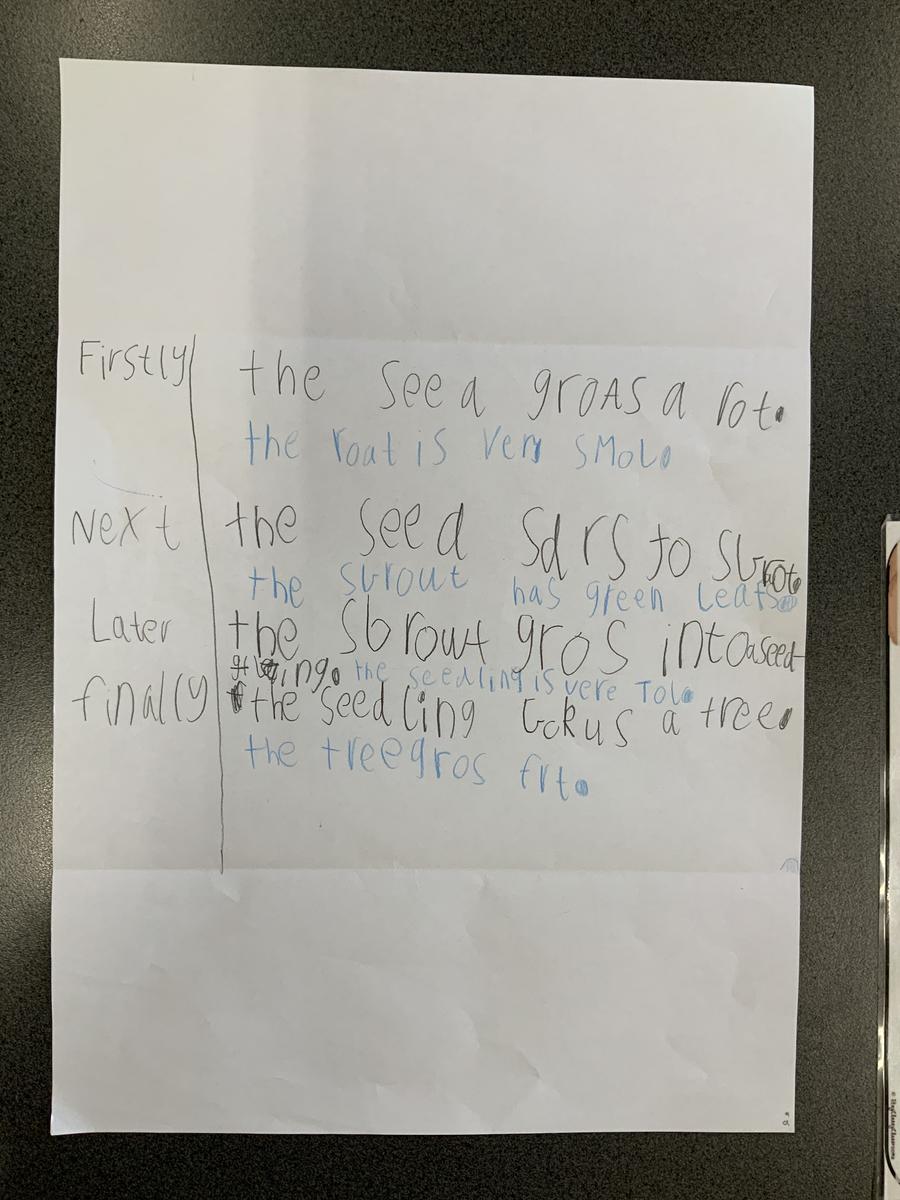 Firstly the seed groAs a rot.
the roat is Very sMol.
Next the seed Sdrs to Sbrot.
the sbrout has green leafs.
Later the Sbrout gros into a seed
ling. the seedling is vere Tol.
finally the seedling a tree.
the tree gros frt.